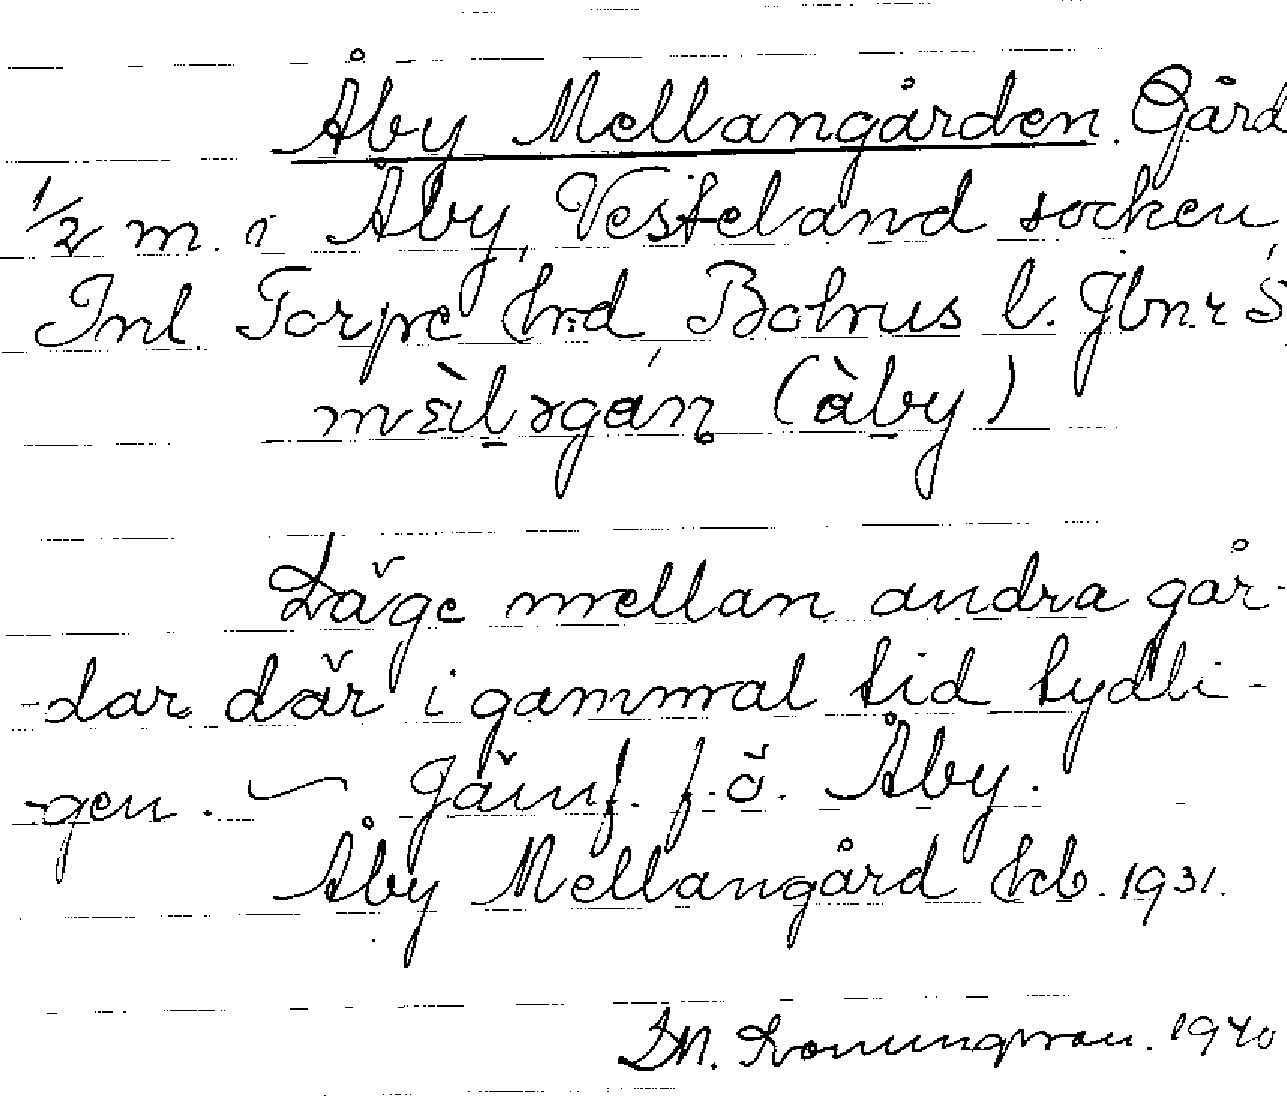 Åby Mellangården. Gård
1/2 m. i Åby, Västeland socken,
Inl. Torpe hrd Bohus l. Jbnr 5
mèlərgán (àby)
Läge mellan andra går-
-dar där i gammal tid tydli-
-gen. — Jämf. f.ö. Åby.
Åby Mellangård hcb. 1931.
1940